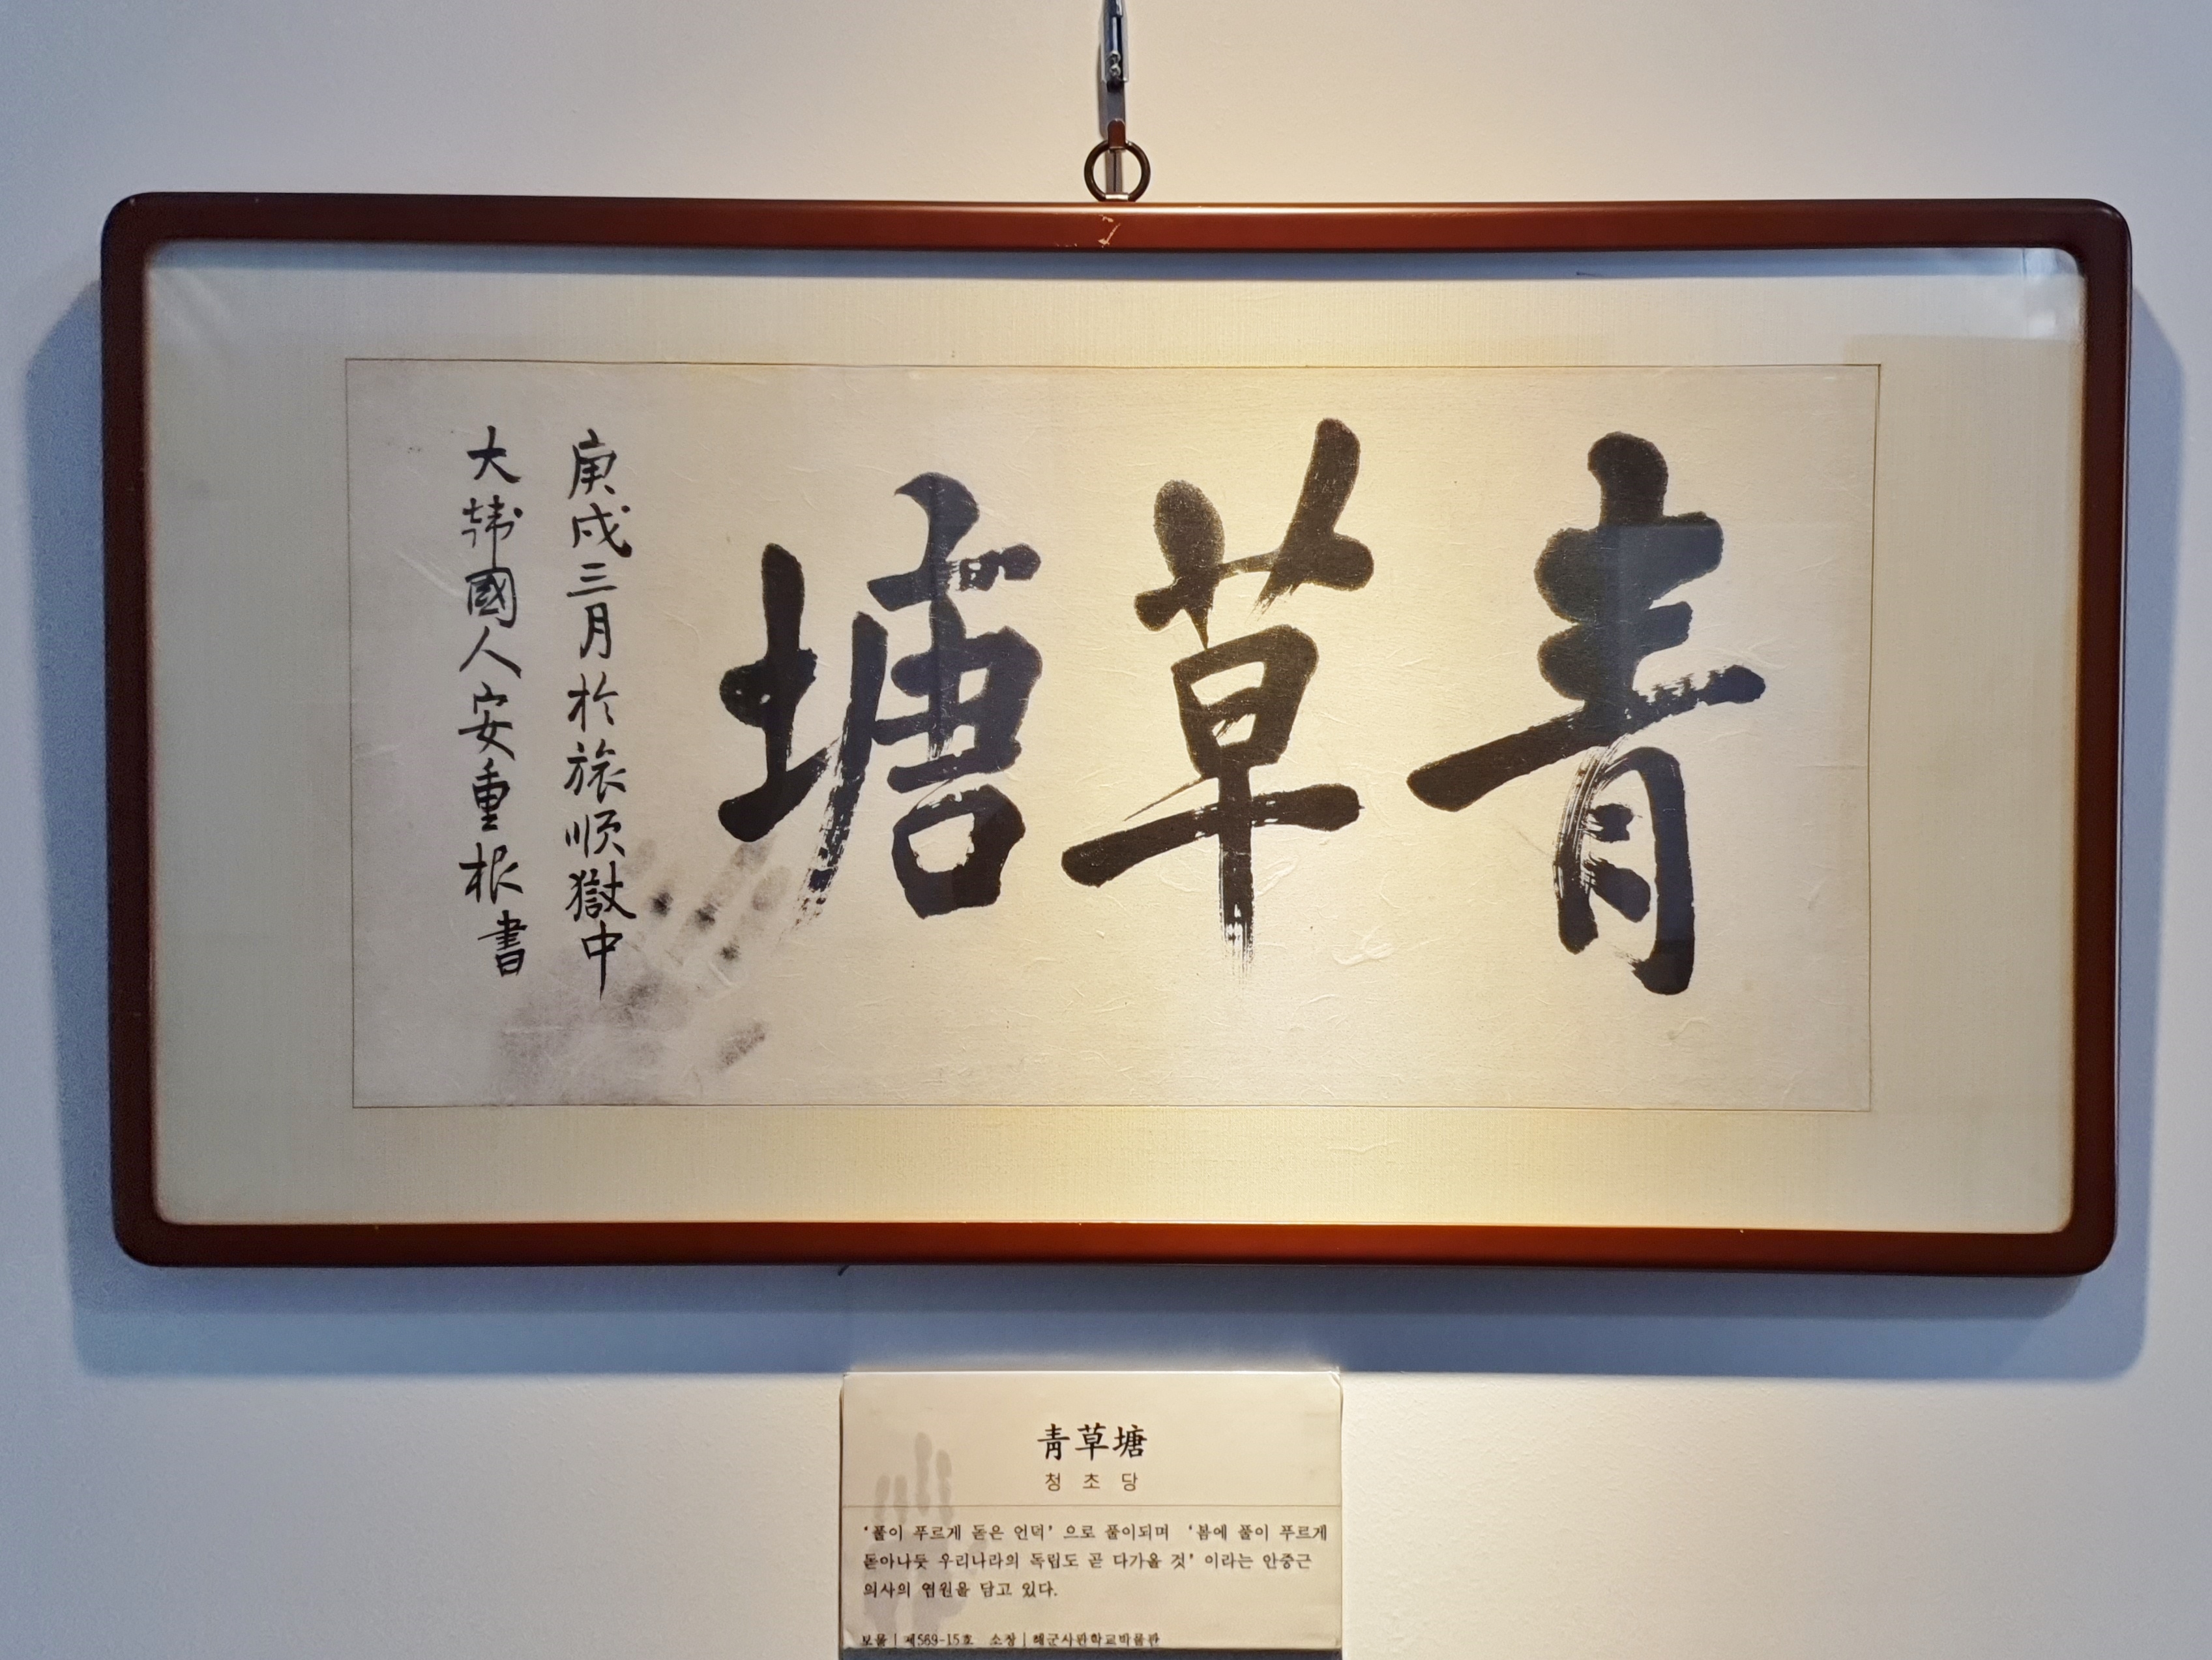 青草塘
庚戌三月於旅順獄中
大韓國人安重根書
靑草塘
청초당
‘풀이 푸르게 돋은 언덕’으로 풀이되며 ‘봄에 풀이 푸르게
돋아나듯 우리나라의 독립도 곧 다가올 것’이라는 안중근
의사의 염원을 담고 있다.
보물 | 제569-15호 소장 | 해군사관학교박물관